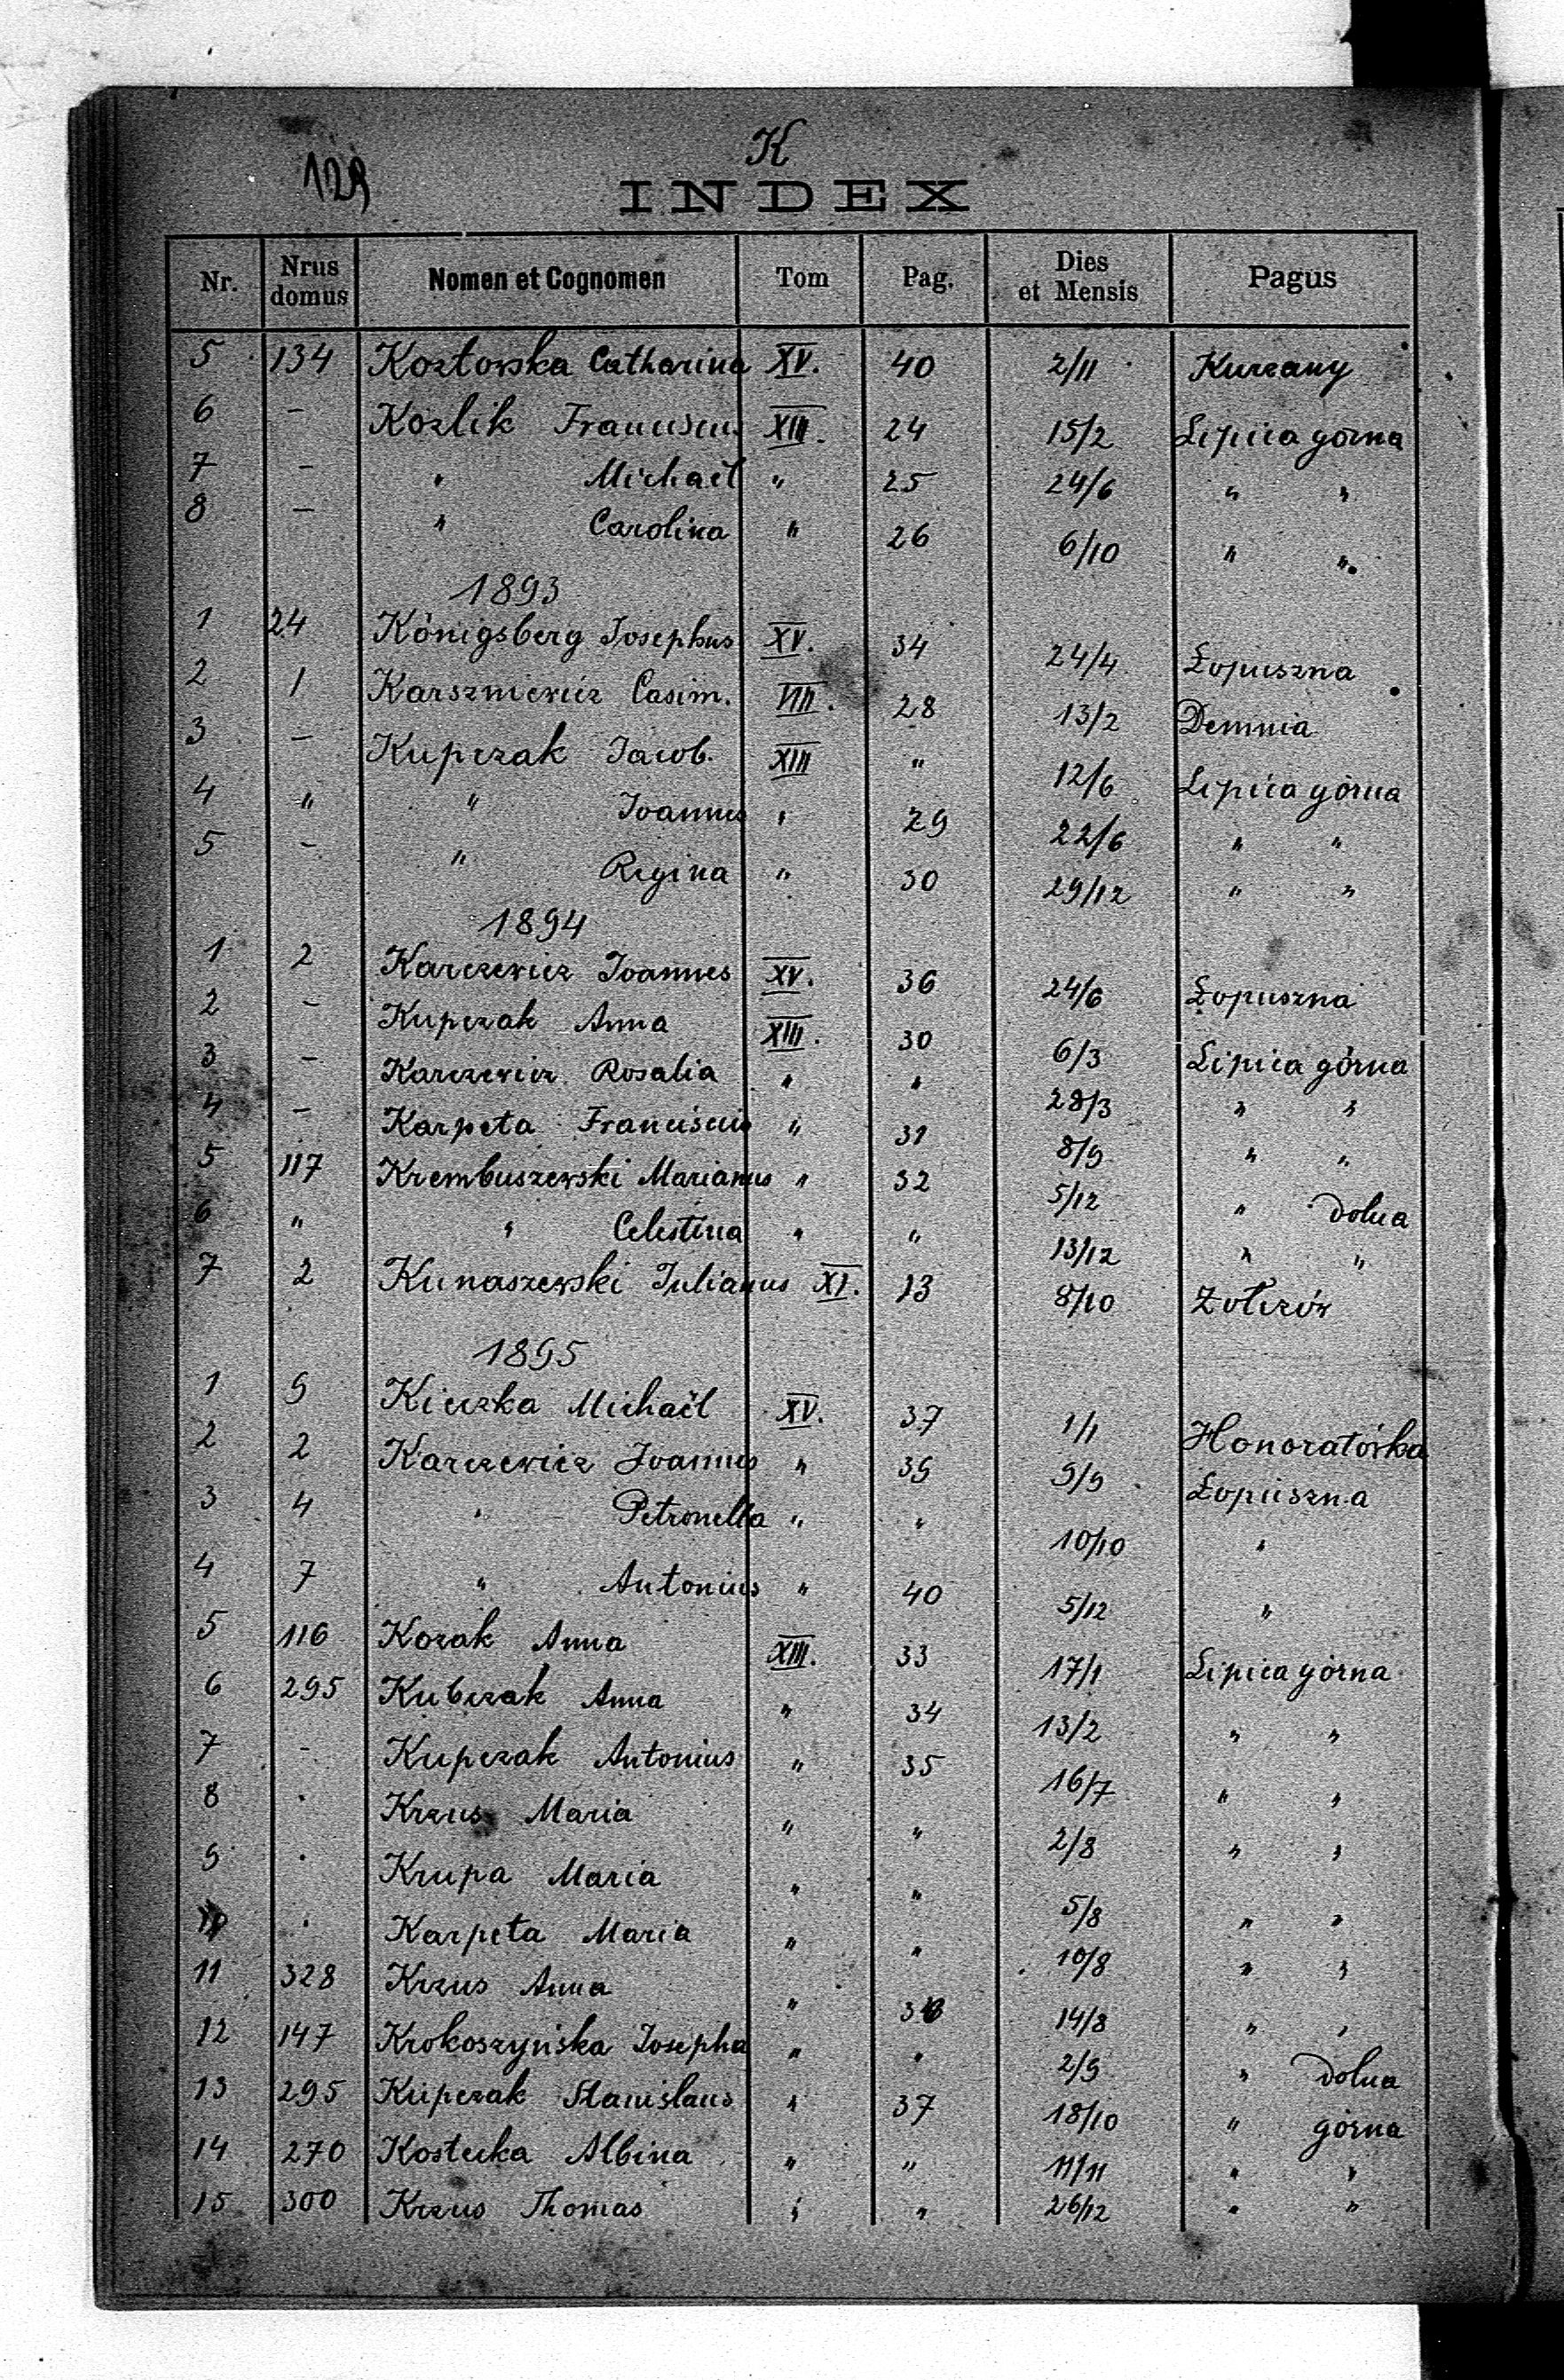 129
K
INDEX
Nr. Nrus domus Nomen et Cognomen Tom Pag. Dies et Mensis Pagus
5 134 Kozłowska Catharina XV. 40 2/11 Kurzany
6 – Kozlik Franciscus XIII. 24 15/2 Lipica górna
7 – " Michaël " 25 24/6 " "
8 – " Carolina " 26 6/10 " "
1893
1 24 Königsberg Josephus XV. 34 24/4 Łopuszna
2 1 Karszniewicz Casim. VIII. 28 13/2 Demnia
3 – Kupczak Jacob. XIII " 12/6 Lipica górna
4 " " Joannes " 29 22/6 " "
5 – " Regina " 30 29/12 " "
1894
1 2 Karczewicz Joannes XV. 36 24/6 Łopuszna
2 – Kupczak Anna XIII. 30 6/3 Lipica górna
3 – Karczewicz Rosalia " " 28/3 " "
4 – Karpeta Franciscus " 31 8/9 " "
5 117 Krembuszewski Marianus " 32 5/12 " dolna
6 " " Celestina " " 13/12 " "
7 2 Kunaszewski Julianus XI. 13 8/10 Żołczów
1895
1 9 Kieczka Michaël XV. 37 1/1 Honoratówka
2 2 Karczewicz Joannes " 39 9/9 Łopuszna
3 4 " Petronella " " 10/10 "
4 7 " Antonius " 40 5/12 "
5 116 Kozak Anna XIII. 33 17/1 Lipica górna
6 295 Kubczak Anna " 34 13/2 " "
7 - Kupczak Antonius " 35 16/7 " "
8 . Krzus Maria " " 2/8 " "
9 . Krupa Maria " " 5/8 " "
10 . Karpeta Maria " " 10/8 " "
11 328 Krzus Anna " 36 14/8 " "
12 147 Krokoszyńska Josepha " " 2/9 " dolna
13 295 Kupczak Stanislaus " 37 18/10 " górna
14 270 Kostecka Albina " " 11/11 " "
15 300 Krzus Thomas " " 26/12 " "